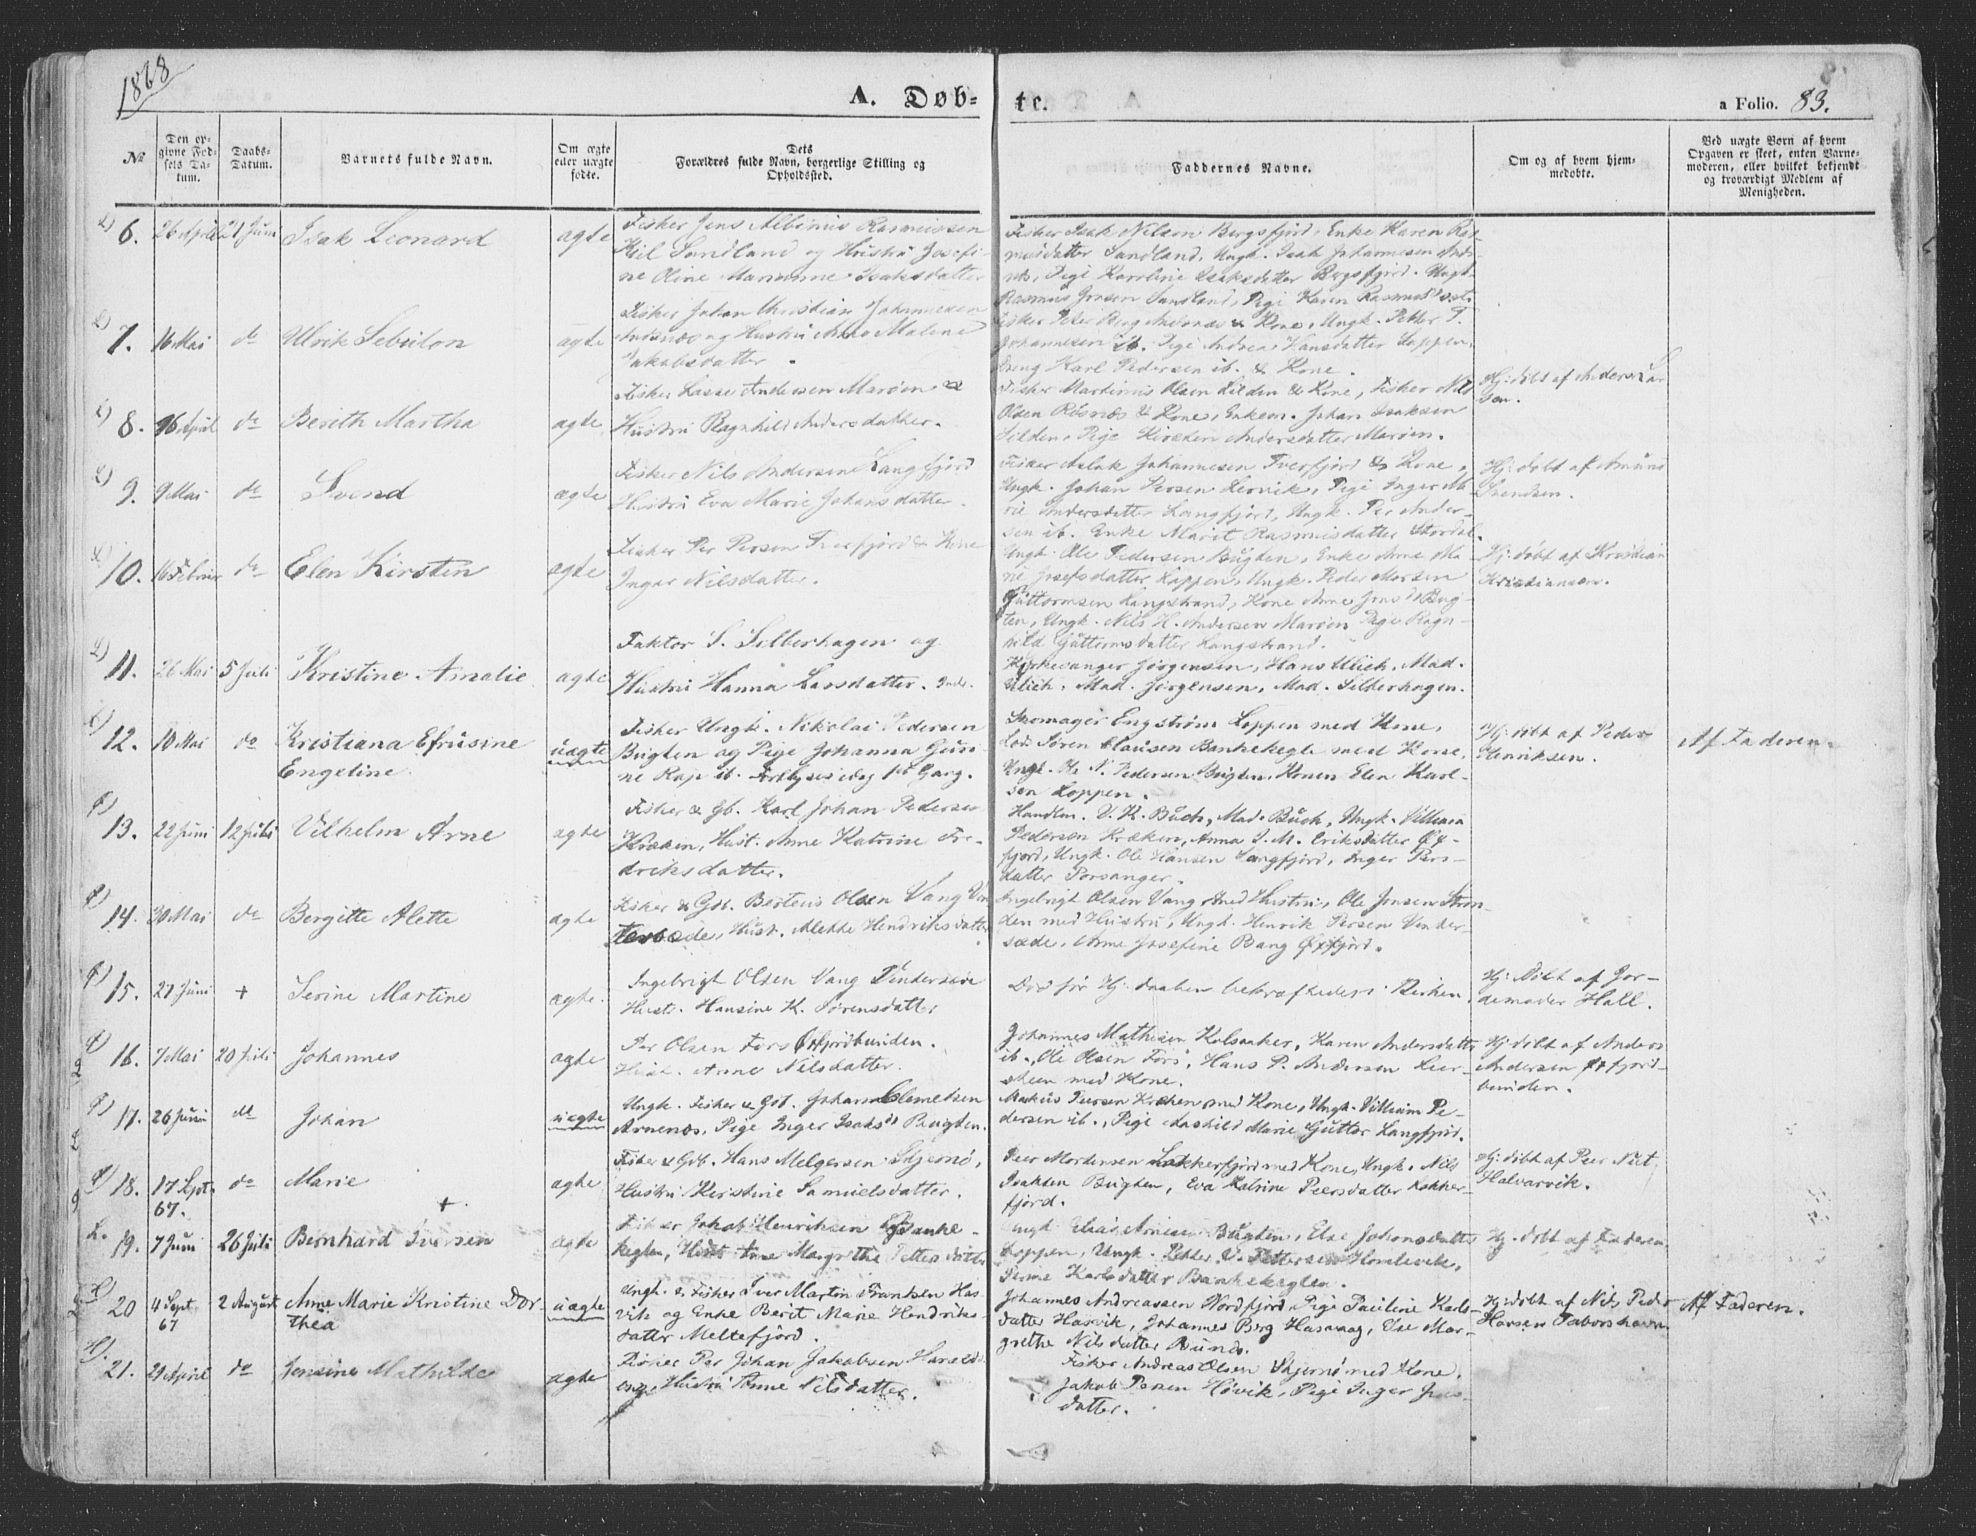 1868
A. Døb-
te.
a Folio. 83.
№
Den op-
givne Fød-
sels Da-
tum.
Daabs-
Datum.
Barnets fulde Navn.
Om ægte
eller uægte
fødte.
Dets
Forældres fulde Navn, borgerlige Stilling og
Opholdssted.
Faddernes Navne.
Om og af hvem hjem-
medøbte.
Ved uægte Børn af hvem
Opgaven er skeet, enten Barne-
moderen, eller hvilket bekjendt
og troværdigt Medlem af
Menigheden.
6. 26 April 21 Juni Isak Leonard ægte
Fisker Jens Albinus Rasmussen
Sandland og Hustru Josefi-
ne Oline Marianne Isaksdatter
Fisker Isak Nilsen Bergsfjord, Enke Karen Ras-
musdatter Sandland, Ungk. Isak Johannesen Ands-
nes, Pige Karoline Isaksdatter Bergsfjord. Ungk.
Rasmus Jensen Sandland, Pige Karen Rasmusdat.
7. 16 Mai do Ulrik Sebulon ægte
Fisker Johan Christian Johannesen
Andsnæs og Hustru Anne Malene
Jakobsdatter.
Fisker Peter Berg Andsnæs & Kone, Ungk. Petter P.
Johannesen ib. Pige Andrea Hansdatter Loppen,
Dreng Karl Pedersen ib. & Kone.
8. 16 April do Berith Martha ægte
Fisker Lasse Andersen Marøen &
Hustru Ragnhild Andersdatter.
Fisker Martinus Olsen Silden & Kone, Fisker Nils
Olsen Risnæs & Kone, Enkem. Johan Isaksen
Silden, Pige Kirsten Andersdatter Marøen.
Hj: døbt af Anders Lar-
sen.
9. 9 Mai do Svend ægte
Fisker Nils Andersen Langfjord
Hustru Eva Marie Johansdatter.
Fisker Aslak Johannesen Tverfjord & Kone,
Ungk. Johan Persen Lervik, Pige Inger Ma-
rie Andersdatter Langfjord, Ungk. Per Ander-
sen ib. Enke Marit Rasmusdatter Stordal.
Hj: døbt af Amund
Svendsen.
10. 16 Februar do Elen Kirsten ægte
Fisker Per Persen Tverfjord & Kone
Inger Nilsdatter.
Ungk. Ole Pedersen Bugten, Enke Anne Ma-
rie Josefsdatter Loppen, Ungk. Peder Morsen
Guttormsen Langstrand, Kone Anne Jensd. Bug-
ten, Ungk. Nils H. Andersen Marøen Pige Ragn-
hild Guttormsdatter Langstrand.
Hj: døbt af Kristian
Kristiansen.
11. 26 Mai 5 Juli Kristine Amalie ægte
Faktor S. Silberhagen og
Hustru Hanna Larsdatter.
Kirkesanger Jørgensen, Hans Ulich. Mad.
Ulich. Mad. Jørgensen, Mad. Silberhagen.
12. 10 Mai do Kristiana Efrusine
Engeline
uægte
Fisker Ungk. Nikolai Pedersen
Bugten og Pige Johanna Guri-
ne Rap ib. Forlyses idag 1ste Gang.
Skomager Engstrøm Loppen med Kone,
Søren Clausen Bankekeglen med Kone,
Ungk. Ole N. Pedersen Bugten, Konen Elen Karl-
sen Loppen.
Hj. døbt af Peder
Henriksen.
Af Faderen.
13. 22 Juni 12 Juli Vilhelm Arne ægte
Fisker & Gb. Karl Johan Pedersen
Kræken, Hust. Anne Katrine Fre-
driksdatter.
Handlm. V. K. Buch, Mad. Buch, Ungk. Villiam
Pedersen Kræken, Anna S. M. Eriksdatter Øx-
fjord, Ungk. Ole Hansen Langfjord, Inger Pers-
datter Porsanger.
14. 30 Mai do Bergitte Alette ægte
Fisker & Gb. Berteus Olsen Vang Vin-
tersæde, Hust. Alette Hendriksdatter.
Ingebrigt Olsen Vang med Hustru, Ole Jensen Stran-
den med Hustru, Ungk. Henrik Persen Vinder-
sæde, Anne Josefine Bang Øxfjord.
15. 27 Juni + Serine Martine ægte.
Ingebrigt Olsen Vang Vindersæde
Hustr. Hansine K. Sørensdatter
Død før Hj. daaben bekræftedes i Kirken.
Hj: døbt af Jor-
demoder Hall.
16. 7 Mai 20 Juli Johannes ægte
Per Olsen Fors Øxfjordbunden.
Hust. Anne Nilsdatter.
Johannes Mathisen Kolsaaker, Karen Andersdatter
ib., Ole Olsen Fors, Hans P. Andersen Leer-
med Kone.
Hj: døbt af Anders
Andersen Øxfjord-
bunden.
17. 26 Juni do Johan uægte
Ungk. Fisker & Gb. Johan Clemetsen
Arnenæs, Pige Inger Isaksd. Bugten.
Markus Persen Kræken med Kone, Ungk. Villiam Pe-
dersen ib., Pige Marie Guttor Langfjord.
18. 17 Sept.
67.
do Marie ægte
Fisker & Gb. Hans Melgersen Skjernø,
Hustru Kerstine Samuelsdatter.
Peer Mortensen Lokkerfjord med Kone, Ungk. Nils
Isaksen Bugten, Eva Katrine Peersdatter Lokker-
fjord.
Hj: døbt af Peer Nil.
Halvarvik.
19. 7 Juni 26 Juli Bernhard Iversen + ægte
Fisker Jakob Henriksen Banke-
keglen, Hust. Ane Margrethe Pettersdatter
Ungk. Elias Arnesen Bugten, Else Johansdatter
Loppen, Ungk. Petter V. Pettersen Homlevik,
Karlsdatter Bankekeglen.
Hj. døbt af Faderen.
20 4 Sept
67
2 August Anne Marie Kristine Dor-
thea
uægte
Ungk. & Fisker Iver Martin Frantsen Has-
vik og Enke Berit Marie Hendriks-
datter Meltefjord.
Johannes Andreassen Nordfjord, Pige Pauline Karls-
datter Hasvik, Johannes Berg Hasvaag, Else Mar-
grethe Nilsdatter Bunds.
Hj: døbt af Nils Peder
Hansen Taborshavn.
Af Faderen.
21. 21 April do Jensine Mathilde ægte
Fisker Per Johan Jakobsen Harelds-
Hustru Anne Nilsdatter.
Fisker Andreas Olsen Skjernø med Kone,
Jakob Persen Høvik, Pige Inger
datter.